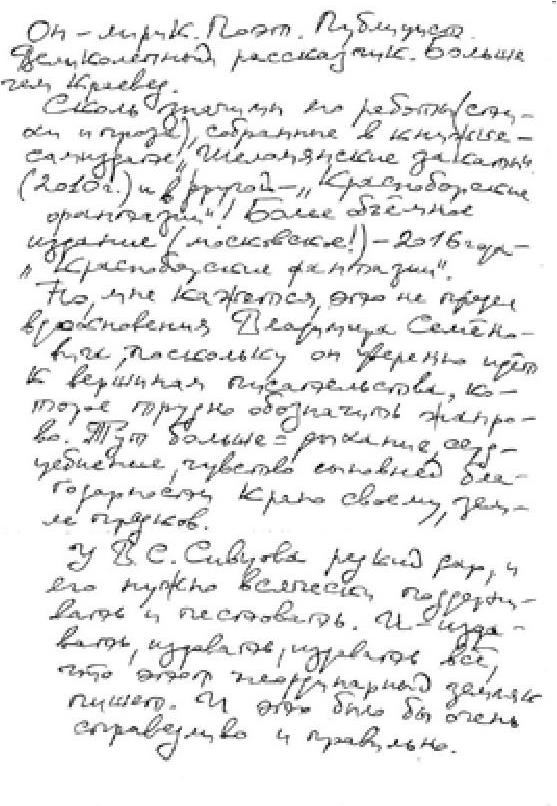 Он – лирик. Поэт. Публицист.
Великолепный рассказчик. Больше
чем краевед.
Сколь значимы его работы (сти-
хи и проза), собранные в книжке-
самиздате „Шеломянские закаты“
(2010г.) и в другой – „Красноборские
фантазии“! Более объёмное
издание (московское!) – 2016 года –
„Красноборские фантазии“.
Но, мне кажется, это не предел
вдохновения Владимира Семёно-
вича, поскольку он уверенно идёт
к вершинам писательства, ко-
торое трудно обозначить жанро-
во. Тут больше – дыхание, серд-
цебиение, чувство сыновней бла-
годарности краю своему, зем-
ле предков.
У В.С. Сивцова редкий дар, и
его нужно всячески поддержи-
вать и пестовать. И – изда-
вать, издавать, издавать всё,
что этот неординарный земляк
пишет. И это было бы очень
справедливо и правильно.